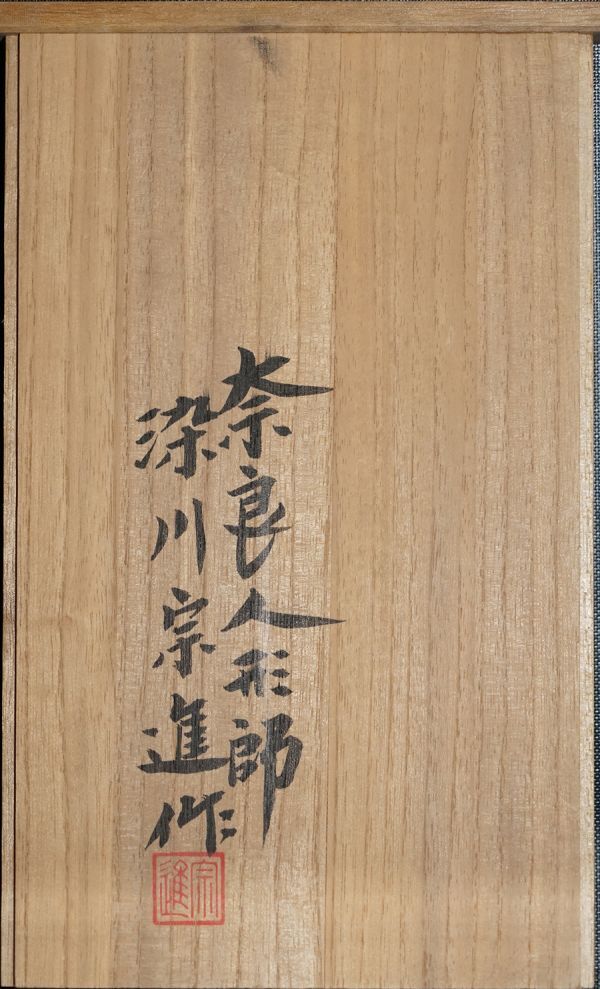 奈良人形師
染川宗進作
宗進